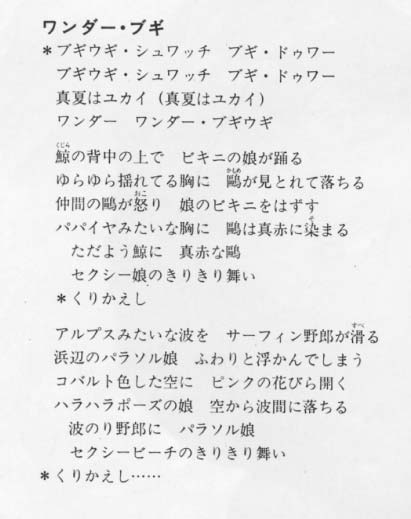 ワンダー・ブギ
*ブギウギ・シュワッチ　ブギ・ドゥワー
ブギウギ・シュワッチ　ブギ・ドゥワー
真夏はユカイ（真夏はユカイ）
ワンダー　ワンダー・ブギウギ
鯨の背中の上で　ビキニの娘が踊る
ゆらゆら揺れてる胸に　鷗が見とれて落ちる
仲間の鷗が怒り　娘のビキニをはずす
パパイヤみたいな胸に　鷗は真赤に染まる
ただよう鯨に　真赤な鷗
セクシー娘のきりきり舞い
*くりかえし
アルプスみたいな波を　サーフィン野郎が滑る
浜辺のパラソル娘　ふわりと浮かんでしまう
コバルト色した空に　ピンクの花びら開く
ハラハラポーズの娘　空から波間に落ちる
波のり野郎に　パラソル娘
セクシービーチのきりきり舞い
*くりかえし……